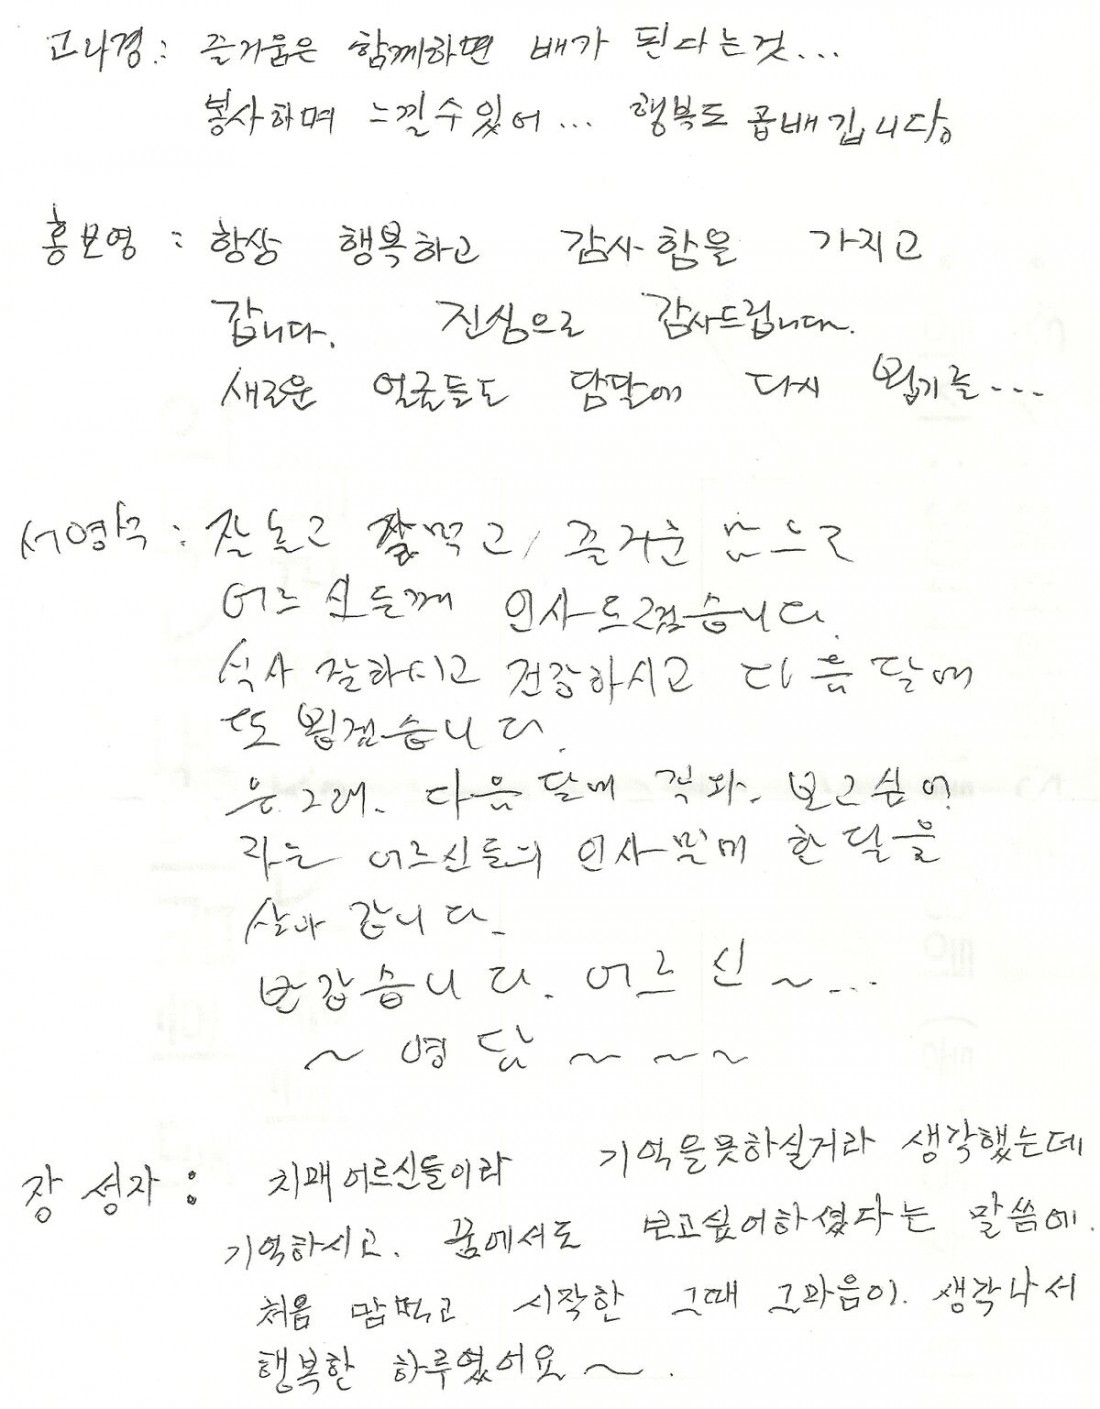 고나경: 즐거움은 함께하면 배가 된다는것...
봉사하며 느낄수있어... 행복도 곱배기입니다.
홍보영 : 항상 행복하고 감사함을 가지고
갑니다. 진심으로 감사드립니다.
새로운 얼굴들도 담달에 다시 뵙기를...
서영숙 : 잘놀고 잘먹고, 즐거운 맘으로
어르신들께 인사드렸습니다.
식사 잘하시고 건강하시고 다음달에
또 뵙겠습니다.
응그래. 다음달에 꼭와. 보고싶어
라는 어르신들의 인사말에 한달을
살아 갑니다.
반갑습니다. 어르신~...
~ ~ ~ ~
장성자 : 치매어르신들이라 기억을못하실거라 생각했는데
기억하시고. 꿈에서도 보고싶어하셨다는 말씀에.
처음 맘먹고 시작한 그때 그마음이. 생각나서
행복한 하루였어요~.